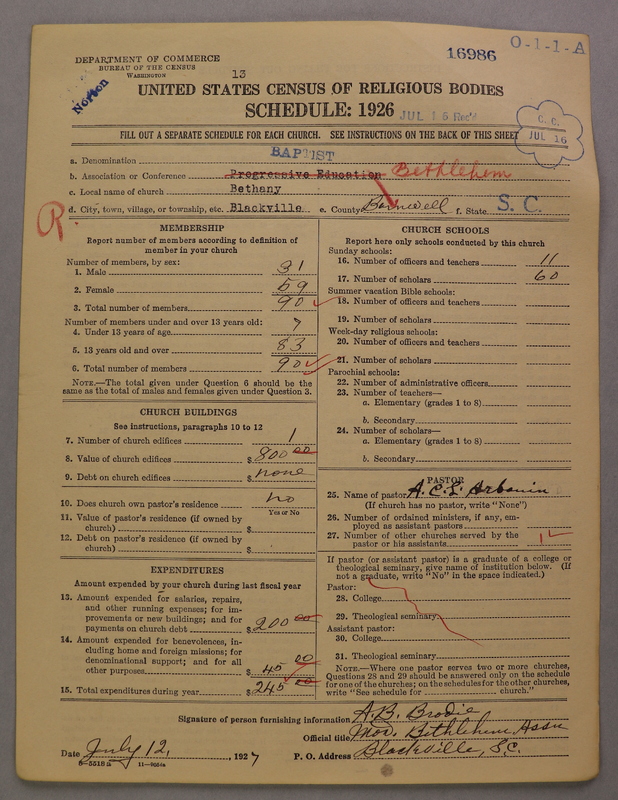 16986
O-1-1-A
DEPARTMENT OF COMMERCE
BUREAU OF THE CENSUS
WASHINGTON
Norton
13
UNITED STATES CENSUS OF RELIGIOUS BODIES
SCHEDULE: 1926
JUL 15 Rec'd
C. C.
JUL 16
FILL OUT A SEPARATE SCHEDULE FOR EACH CHURCH. SEE INSTRUCTIONS ON THE BACK OF THIS SHEET
a. Denomination BAPTIST
b. Association or Conference Progressive Education Bethlehem
c. Local name of church Bethany
d. City, town, village, or township, etc. Blackville e. County Barnwell f. State S. C.
R.
MEMBERSHIP
Report number of members according to definition of
member in your church
Number of members, by sex:
1. Male 31
2. Female 59
3. Total number of members 90
Number of members under and over 13 years old:
4. Under 13 years of age 7
5. 13 years old and over 83
6. Total number of members 90
NOTE.—The total given under Question 6 should be the
same as the total of males and females given under Question 3.
CHURCH BUILDINGS
See instructions, paragraphs 10 to 12
7. Number of church edifices 1
8. Value of church edifices $800 00
9. Debt on church edifices $ none
10. Does church own pastor's residence no
Yes or No
11. Value of pastor's residence (if owned by
church) $
12. Debt on pastor's residence (if owned by
church) $
EXPENDITURES
Amount expended by your church during last fiscal year
13. Amount expended for salaries, repairs,
and other running expenses; for im-
provements or new buildings; and for
payments on church debt $200 00
14. Amount expended for benevolences, in-
cluding home and foreign missions; for
denominational support; and for all
other purposes $45 00
15. Total expenditures during year $245 00
CHURCH SCHOOLS
Report here only schools conducted by this church
Sunday schools:
16. Number of officers and teachers 11
17. Number of scholars 60
Summer vacation Bible schools:
18. Number of officers and teachers
19. Number of scholars
Week-day religious schools:
20. Number of officers and teachers
21. Number of scholars
Parochial schools:
22. Number of administrative officers
23. Number of teachers—
a. Elementary (grades 1 to 8)
b. Secondary
24. Number of scholars—
a. Elementary (grades 1 to 8)
b. Secondary
PASTOR
25. Name of pastor A. C. L.
(If church has no pastor, write "None")
26. Number of ordained ministers, if any, em-
ployed as assistant pastors
27. Number of other churches served by the
pastor or his assistants 1
If pastor (or assistant pastor) is a graduate of a college or
theological seminary, give name of institution below. (If
not a graduate, write "No" in the space indicated.)
Pastor:
28. College
29. Theological seminary
Assistant pastor:
30. College
31. Theological seminary
NOTE.—Where one pastor serves two or more churches,
Questions 28 and 29 should be answered only on the schedule
for one of the churches; on the schedules for the other churches,
write "See schedule for church."
Signature of person furnishing information A. B. Brodie
Official title Mod. Bethlehem Assn
Date July 12, 1927 P. O. Address Blackville, S.C.
8-5518a 11-8664a